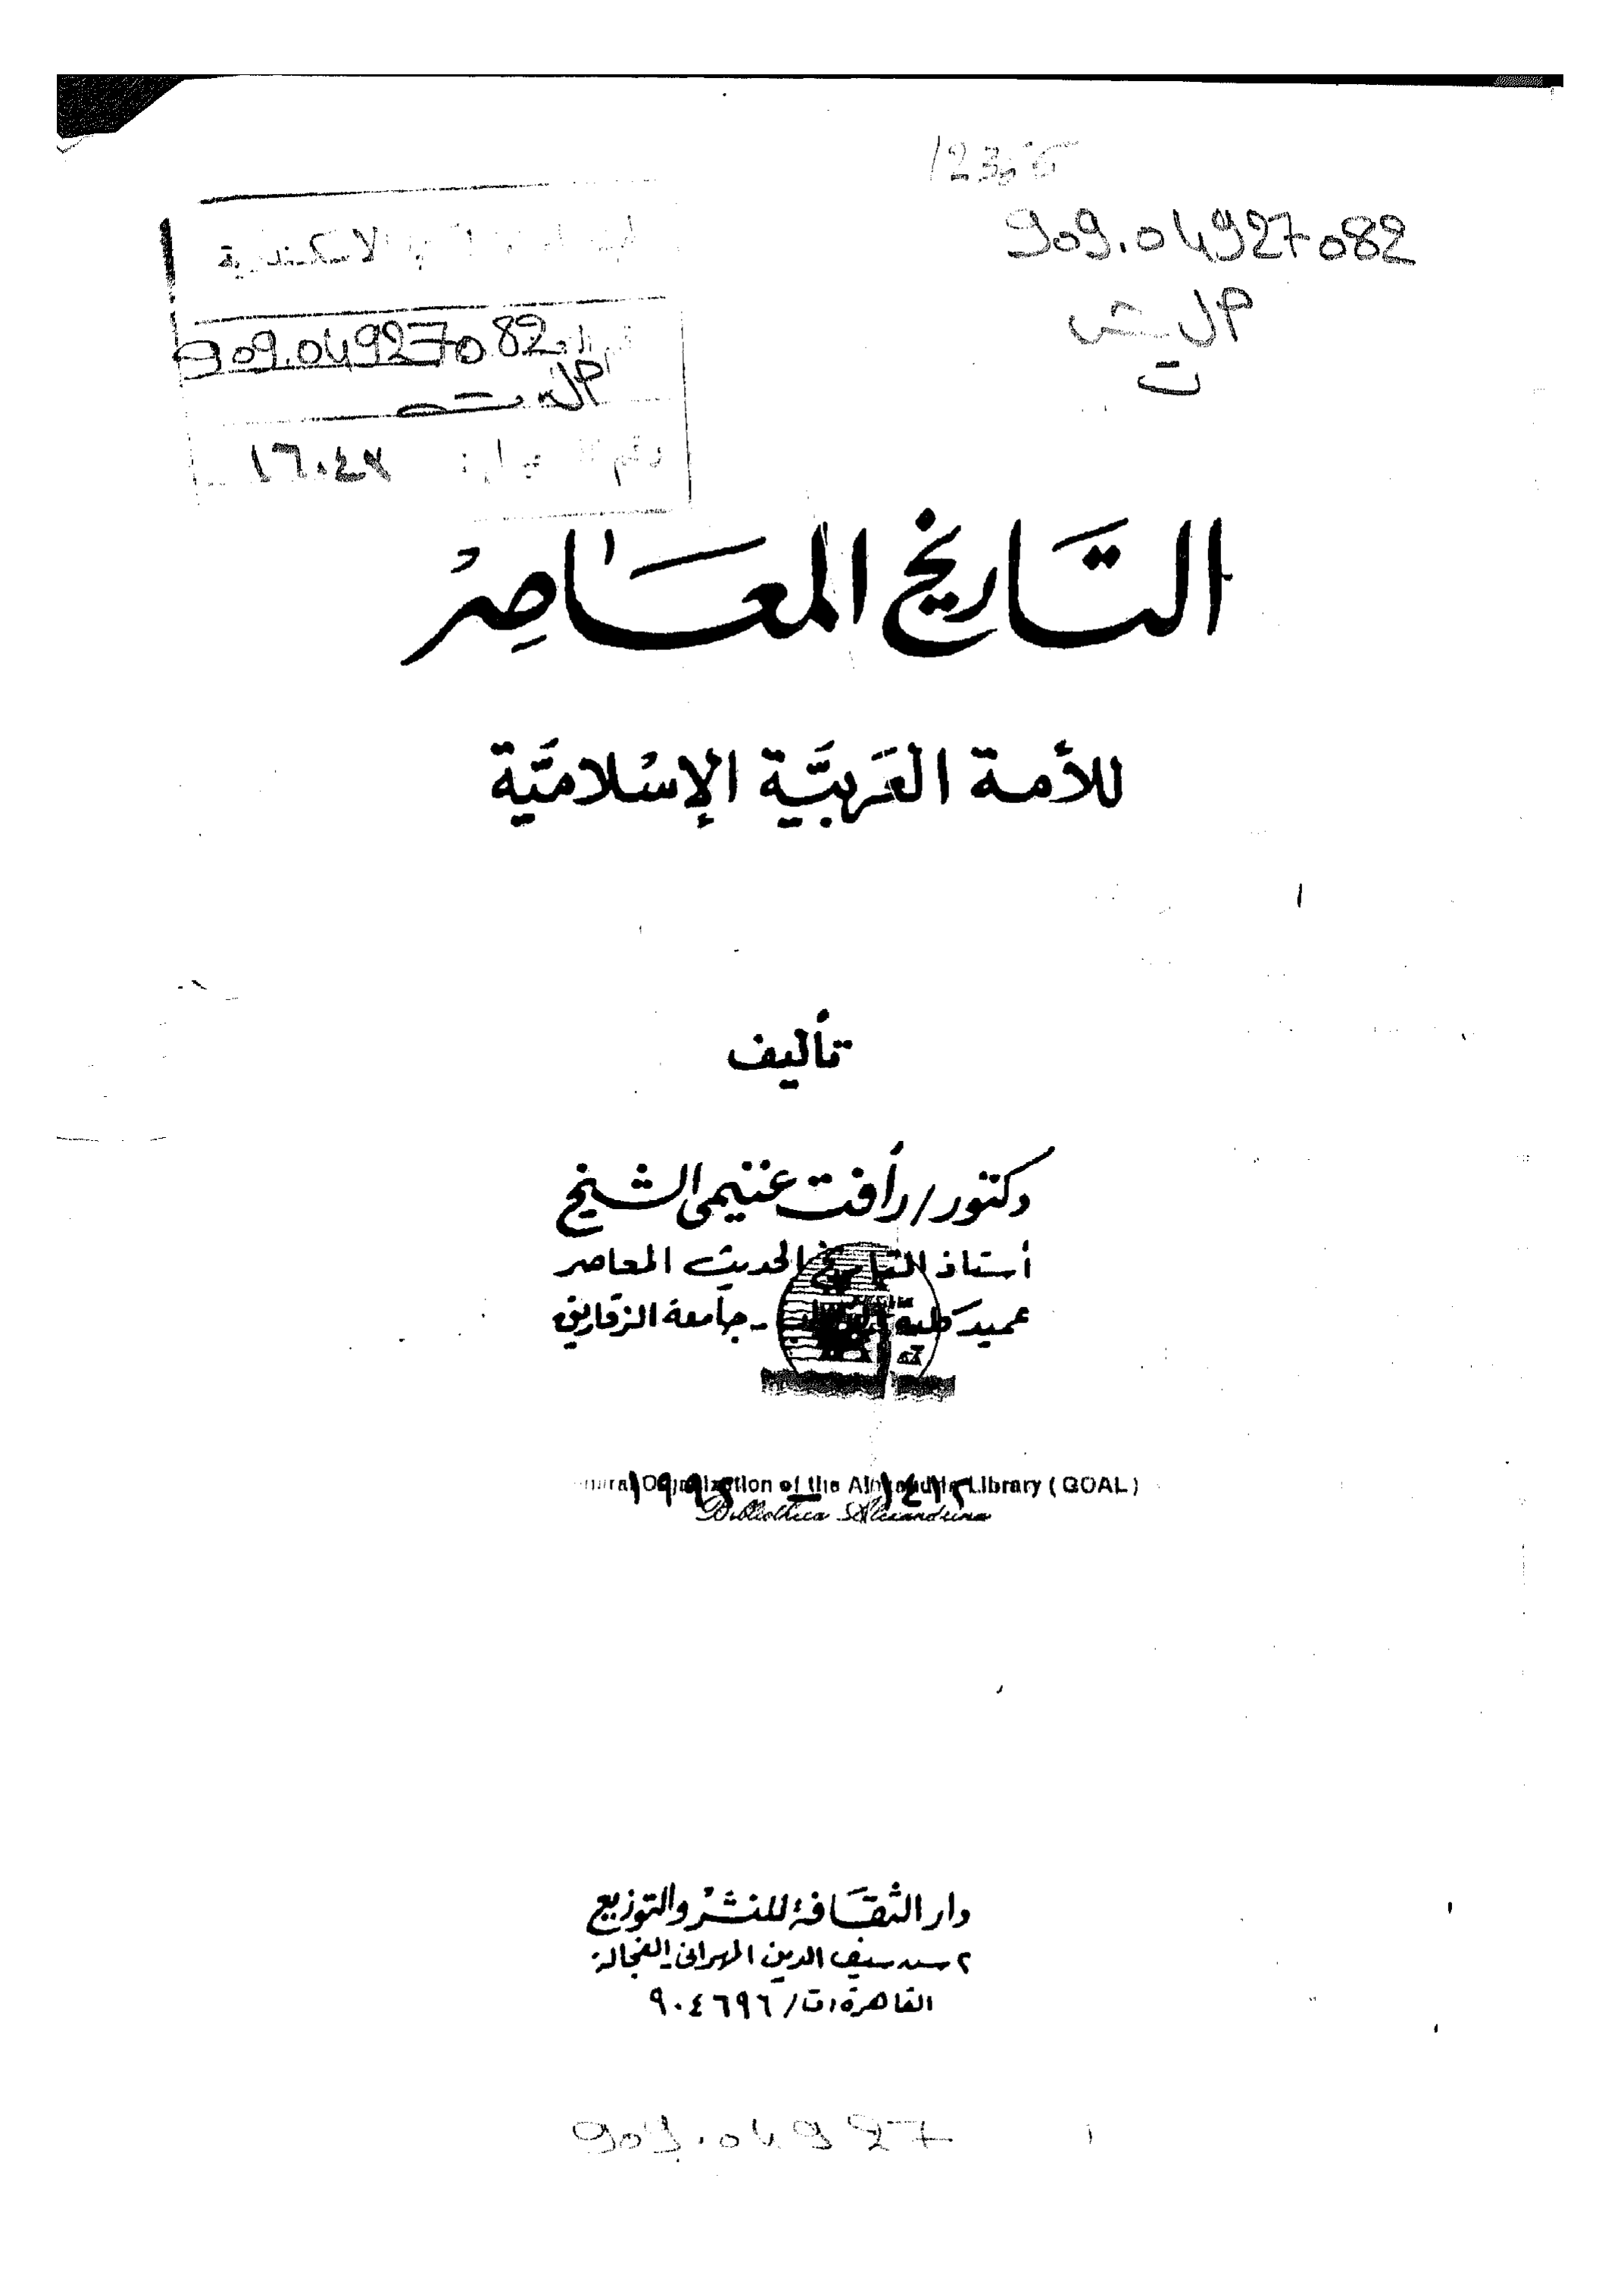 909.04927082
الاسكندرية
909.04927082
١٦٠٤٧
التَّاريخ المعَاصِرْ
للأمة العَربيَّة الإسْلاميَّة
تأليف
دكتور/ رأفت غنيمى الشيخ
أستاذ التاريخ الحديث المعاصر
عميد كلية - جامعة الزقازيق
of the Library (GOAL)
Bibliotheca Alexandrina
دار الثقَافة للنشْر والتوزيع
٢ سيف الدين المهرانى - الفجالة
القاهرة ت/ ٩٠٤٦٩٦
909.04927